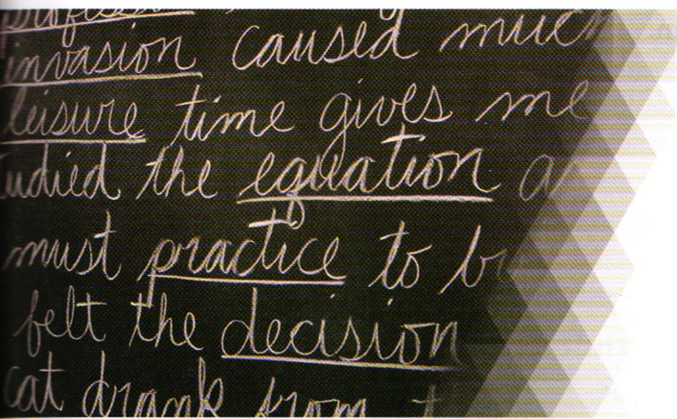 invasion caused much
leisure time gives me
the equation
must practice to
felt the decision
cat drank from